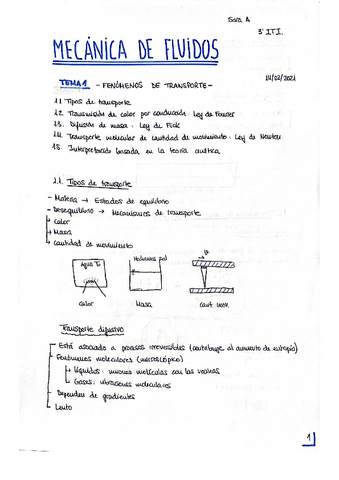 Sara A
3º ITI.
MECÁNICA DE FLUIDOS
14/02/2021
TEMA 1 - FENÓMENOS DE TRANSPORTE -
1.1. Tipos de transporte
1.2. Transmisión de calor por conducción: Ley de Fourier
1.3. Difusión de masa: Ley de Fick
1.4. Transporte molecular de cantidad de movimiento: Ley de Newton
1.5. Interpretación basada en la teoría cinética
1.1. Tipos de transporte
- Materia → Estados de equilibrio
- Desequilibrio → Mecanismos de transporte
Calor
Masa
Cantidad de movimiento
Agua Tª
calor
Masa
cant mov
Transporte difusivo
Está asociado a procesos irreversibles (contribuye al aumento de entropía)
Fenómenos moleculares (microscópico)
Líquidos: uniones moléculas con las vecinas
Gases: vibraciones moleculares
Dependen de gradientes
Lento
1